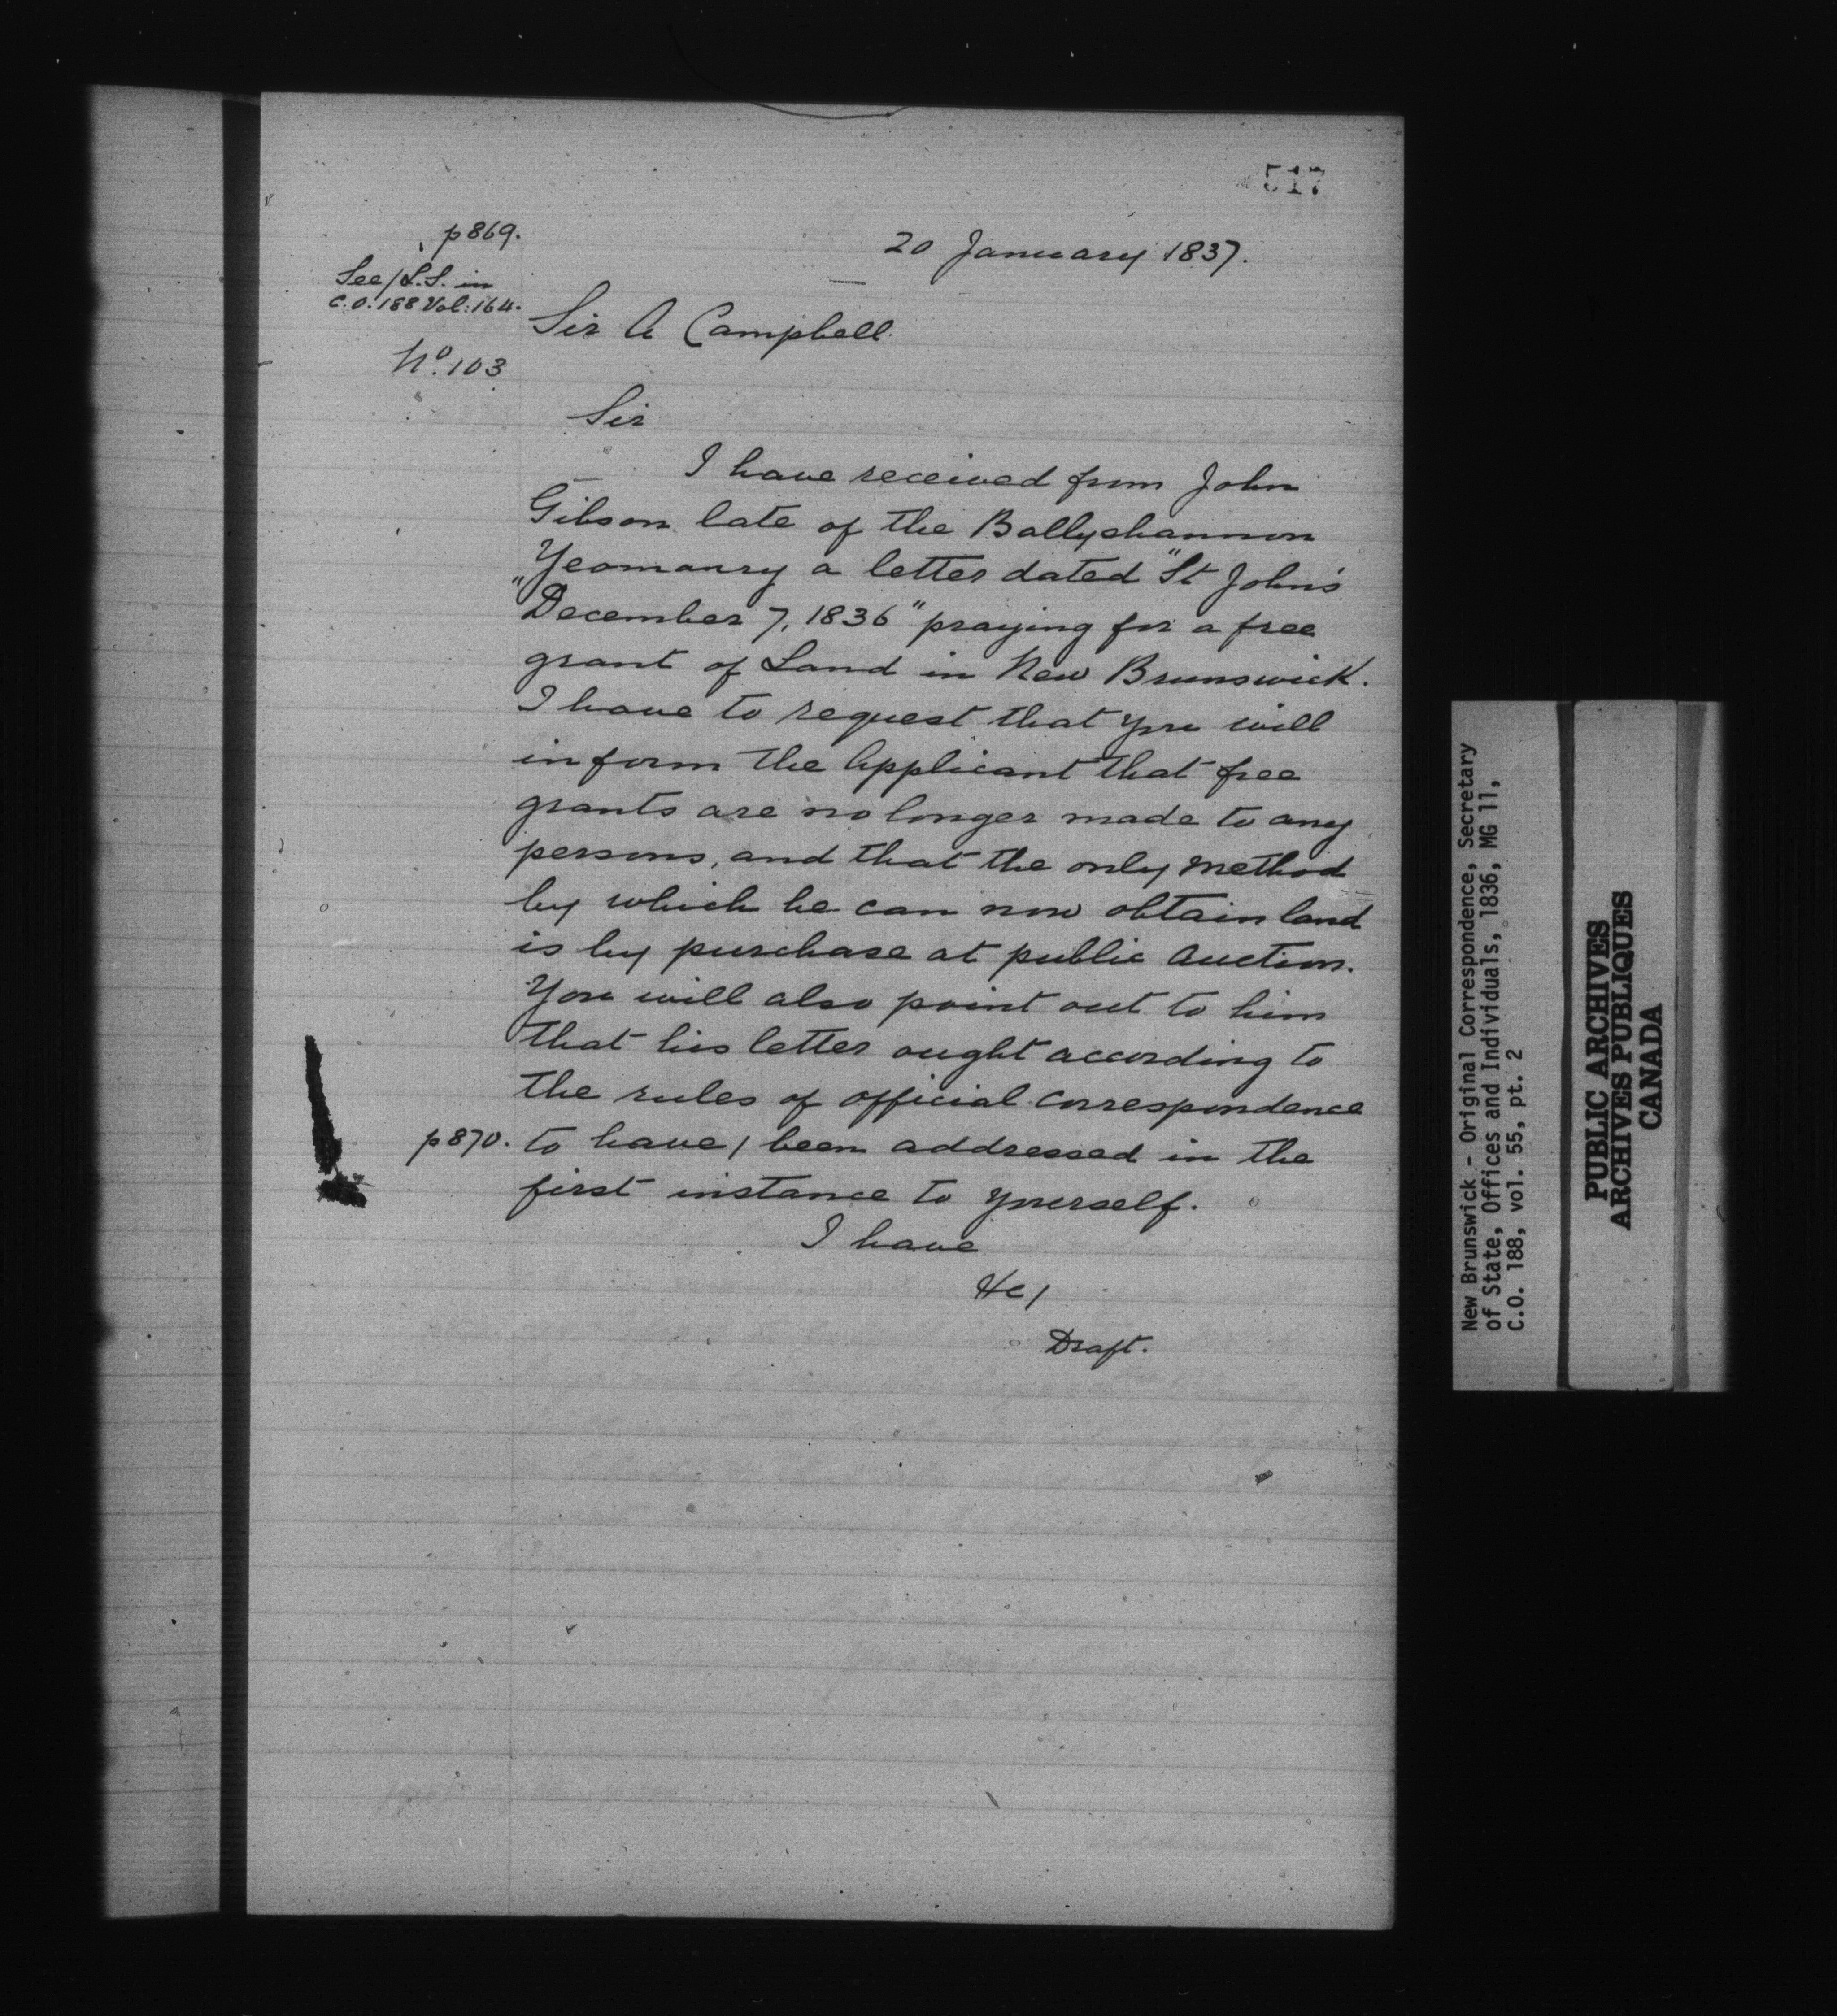 517
p 869.
20 January 1837.
See / L.S. in
C.O. 188 Vol: 164.
Sir A Campbell.
No. 103
Sir
I have received from John
Gibson late of the Ballyshannon
Yeomanry a letter dated "St John's
"December 7, 1836" praying for a free
grant of Land in New Brunswick.
I have to request that you will
inform the Applicant that free
grants are no longer made to any
persons, and that the only method
by which he can now obtain land
is by purchase at public Auction.
You will also point out to him
that his letter ought according to
the rules of official correspondence
p 870. to have / been addressed in the
first instance to yourself.
I have
&c /
Draft.
New Brunswick - Original Correspondence, Secretary
of State, Offices and Individuals, 1836, MG 11,
C.O. 188, vol. 55, pt. 2
PUBLIC ARCHIVES
ARCHIVES PUBLIQUES
CANADA